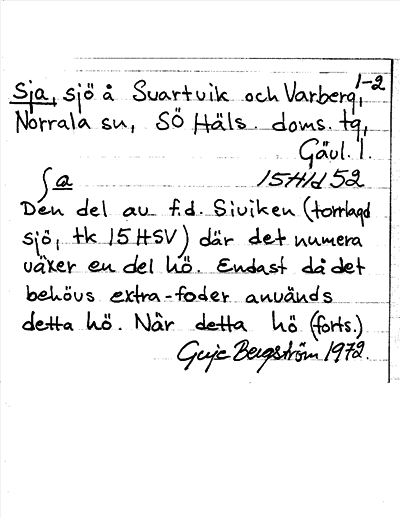 1-2
Sja, sjö å Svartvik och Varberg,
Norrala sn, SÖ Häls. doms. tg,
Gävl. l.
ʃa 15H1d 52
Den del av f.d. Siviken (torrlagd
sjö, tk 15HSV) där det numera
växer en del hö. Endast då det
behövs extra-foder används
detta hö. När detta hö (forts.)
Bergström 1972.